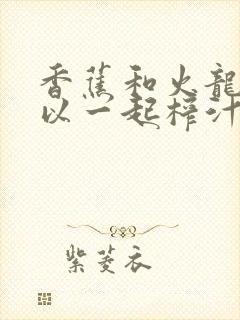 香蕉和火龍
以一起榨汁
紫菱衣